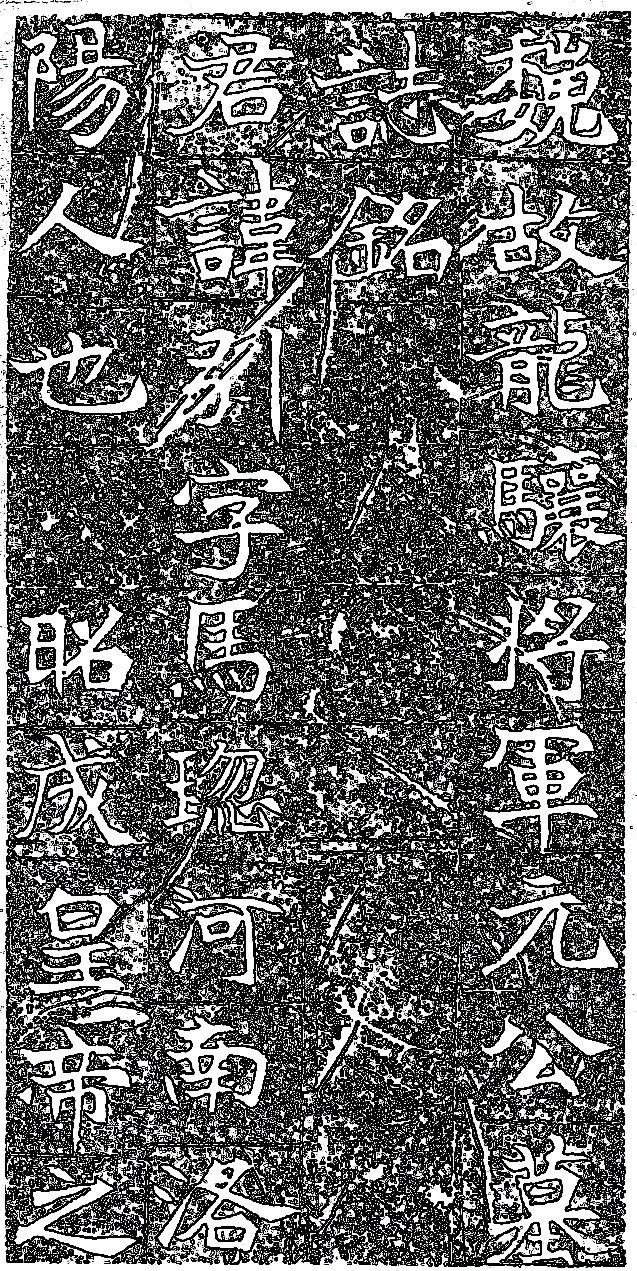 魏故龍驤將軍元公墓
誌銘
君諱引字馬琡河南洛
陽人也 昭成皇帝之